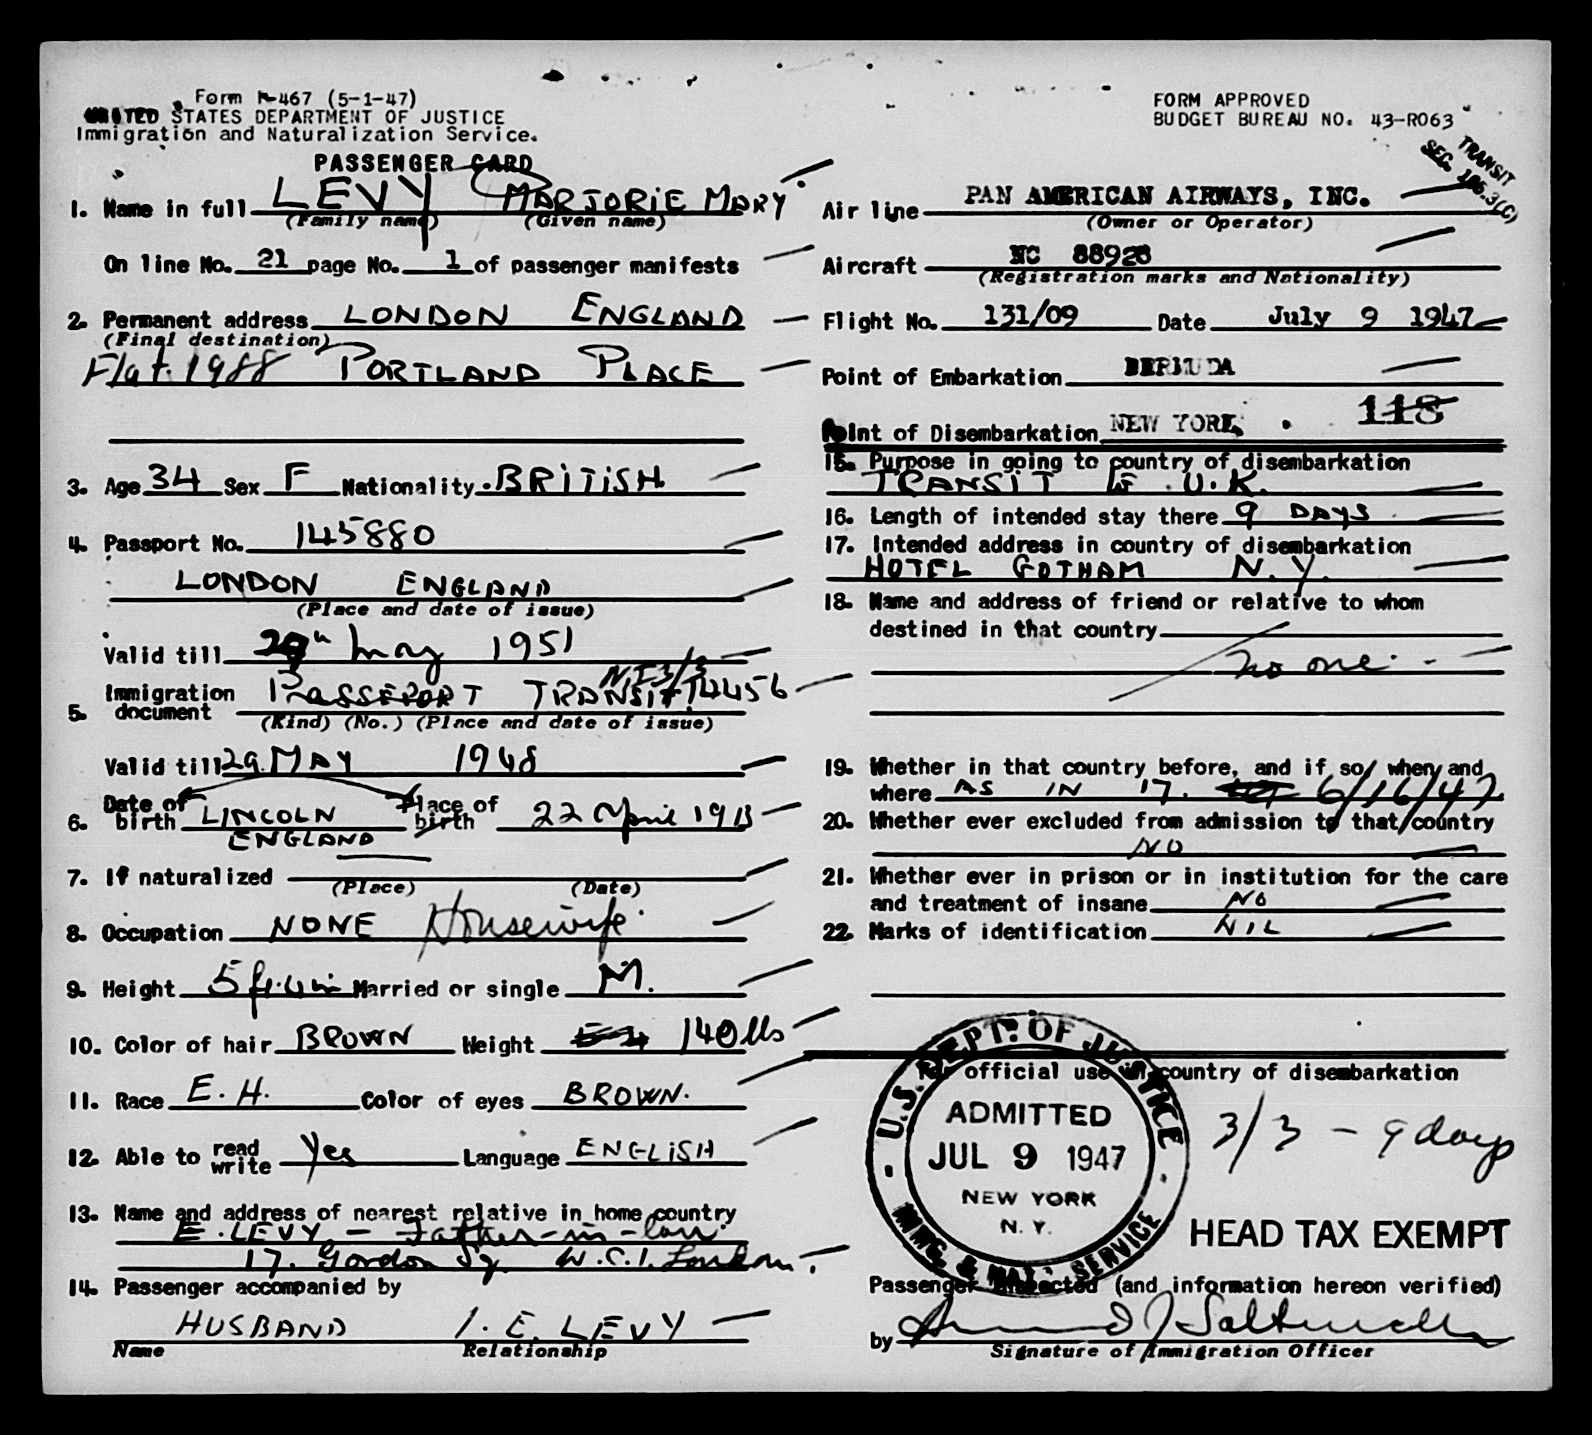 Form I-467 (5-1-47)
UNITED STATES DEPARTMENT OF JUSTICE
Immigration and Naturalization Service.
PASSENGER CARD
1. Name in full LEVY MARJORIE MARY
(Family name) (Given name)
On line No. 21 page No. 1 of passenger manifests
2. Permanent address LONDON ENGLAND
(Final destination)
Flat 1988 PORTLAND PLACE
3. Age 34 Sex F Nationality BRITISH
4. Passport No. 145880
LONDON ENGLAND
(Place and date of issue)
Valid till May 1951
NI 3/3
5. Immigration document PASSEPORT TRANSIT 14456
(Kind) (No.) (Place and date of issue)
Valid till 29 MAY 1948
6. Date of birth LINCOLN Place of birth 22 April 1913
ENGLAND
7. If naturalized
(Place) (Date)
8. Occupation NONE Housewife
9. Height 5 ft. 4 in Married or single M.
10. Color of hair BROWN Weight 140 lbs
11. Race E.H. Color of eyes BROWN.
12. Able to read write Yes Language ENGLISH
13. Name and address of nearest relative in home country
E. LEVY – Father-in-law
17. Gordon Sq. W.C.1. London.
14. Passenger accompanied by
HUSBAND I. E. LEVY
Name Relationship
FORM APPROVED
BUDGET BUREAU NO. 43-R063
TRANSIT
SEC. 186.3(C)
Air line PAN AMERICAN AIRWAYS, INC.
(Owner or Operator)
Aircraft NC 88928
(Registration marks and Nationality)
Flight No. 131/09 Date July 9 1947
Point of Embarkation BERMUDA
118
Point of Disembarkation NEW YORK
15. Purpose in going to country of disembarkation
TRANSIT U.K.
16. Length of intended stay there 9 DAYS
17. Intended address in country of disembarkation
HOTEL GOTHAM N.Y.
18. Name and address of friend or relative to whom
destined in that country
no one
19. Whether in that country before, and if so, when and
where AS IN 17. 6/16/47
20. Whether ever excluded from admission to that country
NO
21. Whether ever in prison or in institution for the care
and treatment of insane NO
22. Marks of identification NIL
For official use in country of disembarkation
U.S. DEPT. OF JUSTICE
ADMITTED
JUL 9 1947
NEW YORK
N. Y.
IMMG. & NAT. SERVICE
3/3 – 9 days
HEAD TAX EXEMPT
Passenger inspected (and information hereon verified)
by
Signature of Immigration Officer